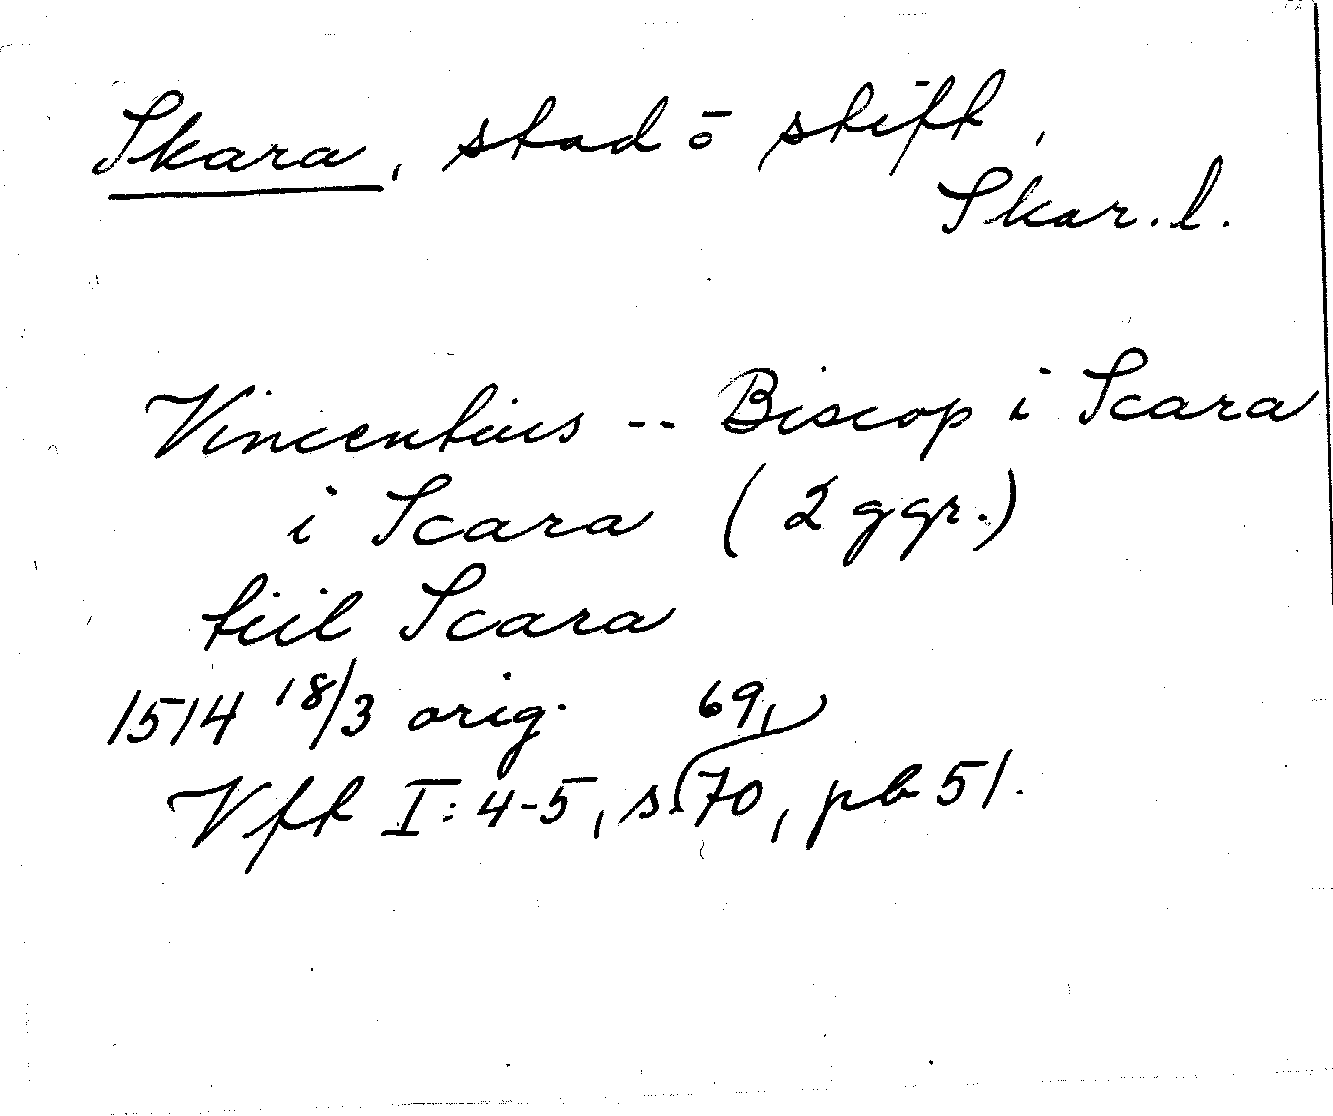 Skara, stad ō stift,
Skar. l.
Vincentius -- Biscop i Scara
i Scara (2 ggr.)
tiil Scara
1514 18/3 orig.
Vft I: 4-5, s. 69, 70, pb 51.